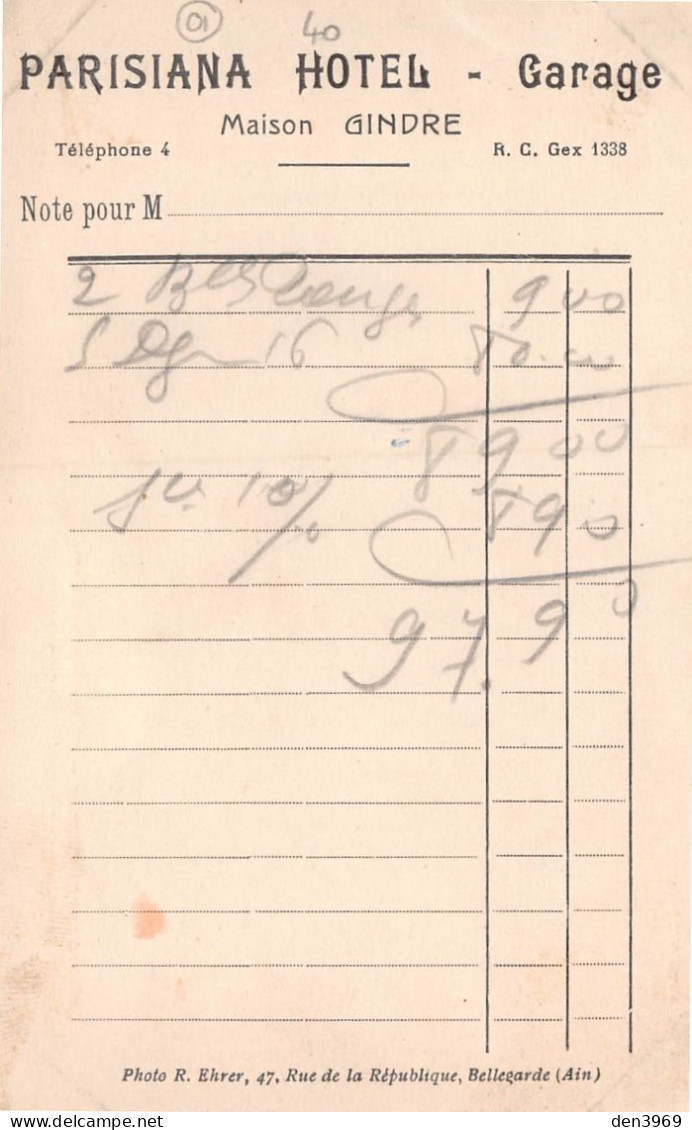 01 40
PARISIANA HOTEL - Garage
Maison GINDRE
Téléphone 4 R. C. Gex 1338
Note pour M
2 Blles Rouge 9 00
5 16 80.00
89 00
10% 8 90
97.90
Photo R. Ehrer, 47, Rue de la République, Bellegarde (Ain)
den3969